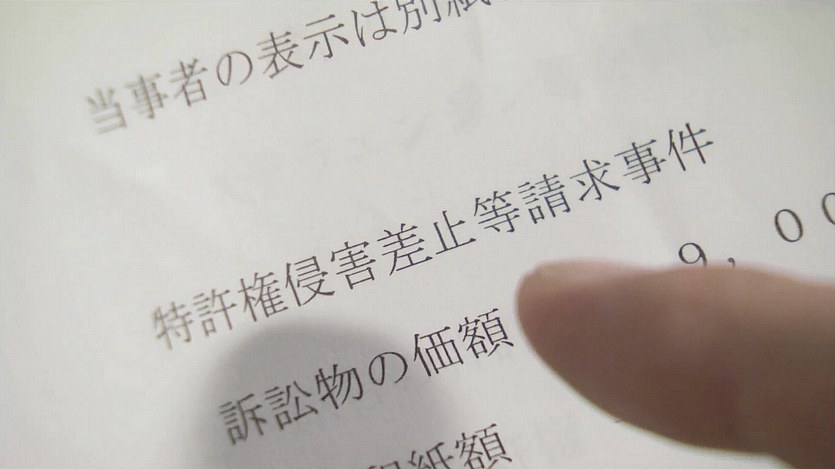 当事者の表示は別紙
特許権侵害差止等請求事件
訴訟物の価額 9,00
紙額